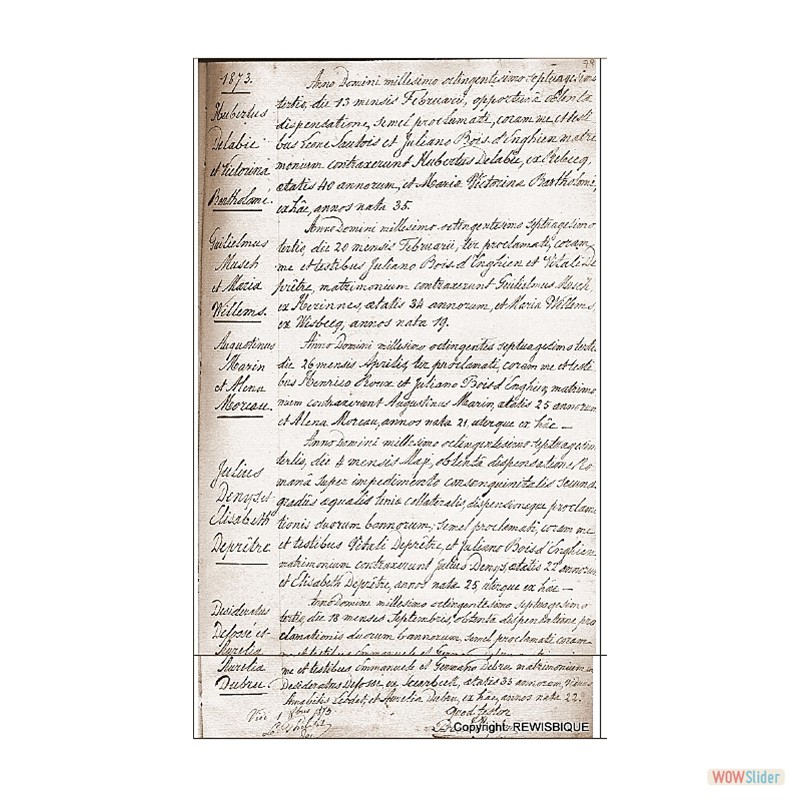 1873.
Anno Domini millesimo octingentesimo septuagesimo
Hubertus
Delabie
et Victorina
Bartholomé.
tertio, die 13 mensis Februarii, opportunâ obtentâ
dispensatione, semel proclamati, coram me, et testi
bus Leone Sautois et Juliano Bois d'Enghien matri
monium contraxerunt Hubertus Delabie, ex Rebecq,
ætatis 40 annorum, et Maria Victorina Bartholomé,
ex hâc, annos nata 35.
Guilielmus
Musch
et Maria
Willems.
Anno Domini millesimo octingentesimo septuagesimo
tertio, die 20 mensis Februarii, ter proclamati, coram
me et testibus Juliano Bois d'Enghien et Vitali De
prêtre, matrimonium contraxerunt Guilielmus Musch,
ex Herinnes, ætatis 34 annorum, et Maria Willems,
ex Wisbecq, annos nata 19.
Augustinus
Marin
et Alena
Moreau.
Anno Domini millesimo octingentes septuagesimo tertio
die 26 mensis Aprilis, ter proclamati, coram me et testi
bus Henrico Roux et Juliano Bois d'Enghien, matrimo
nium contraxerunt Augustinus Marin, ætatis 25 annorum
et Alena Moreau, annos nata 21, uterque ex hâc —
Julius
Denys et
Elisabeth
Deprêtre.
Anno Domini millesimo octingentesimo septuagesimo
tertio, die 4 mensis Maji, obtentâ dispensatione Ro
manâ super impedimento consanguinitatis secundi
gradûs æqualis lineæ collateralis, dispensioneque proclama
tionis duorum bannorum, semel proclamati, coram me
et testibus Vitali Deprêtre, et Juliano Bois d'Enghien
matrimonium contraxerunt Julius Denys, ætatis 22 annorum
et Elisabeth Deprêtre, annos nata 25, uterque ex hâc —
Desideratus
Defossé et
Aurelia
Anno Domini millesimo octingentesimo septuagesimo
tertio, die 18 mensis Septembris, obtenta dispensatione pro
clamationis duorum bannorum, semel proclamati coram
me et testibus Emmanuele et
Aurelia
Dubru.
me et testibus Emmanuele et Germano Dubru matrimonium
Desideratus Defossé, ex Scarbecq, ætatis 33 annorum,
et Aurelia Dubru, ex hâc, annos nata 22.
1873
Quod testor
Copyright: REWISBIQUE
WOWSlider